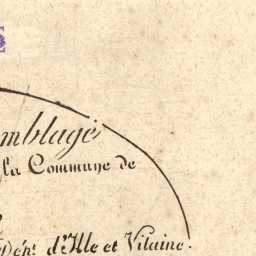 mblage
la Commune de
Dépt. d'Ille et Vilaine.